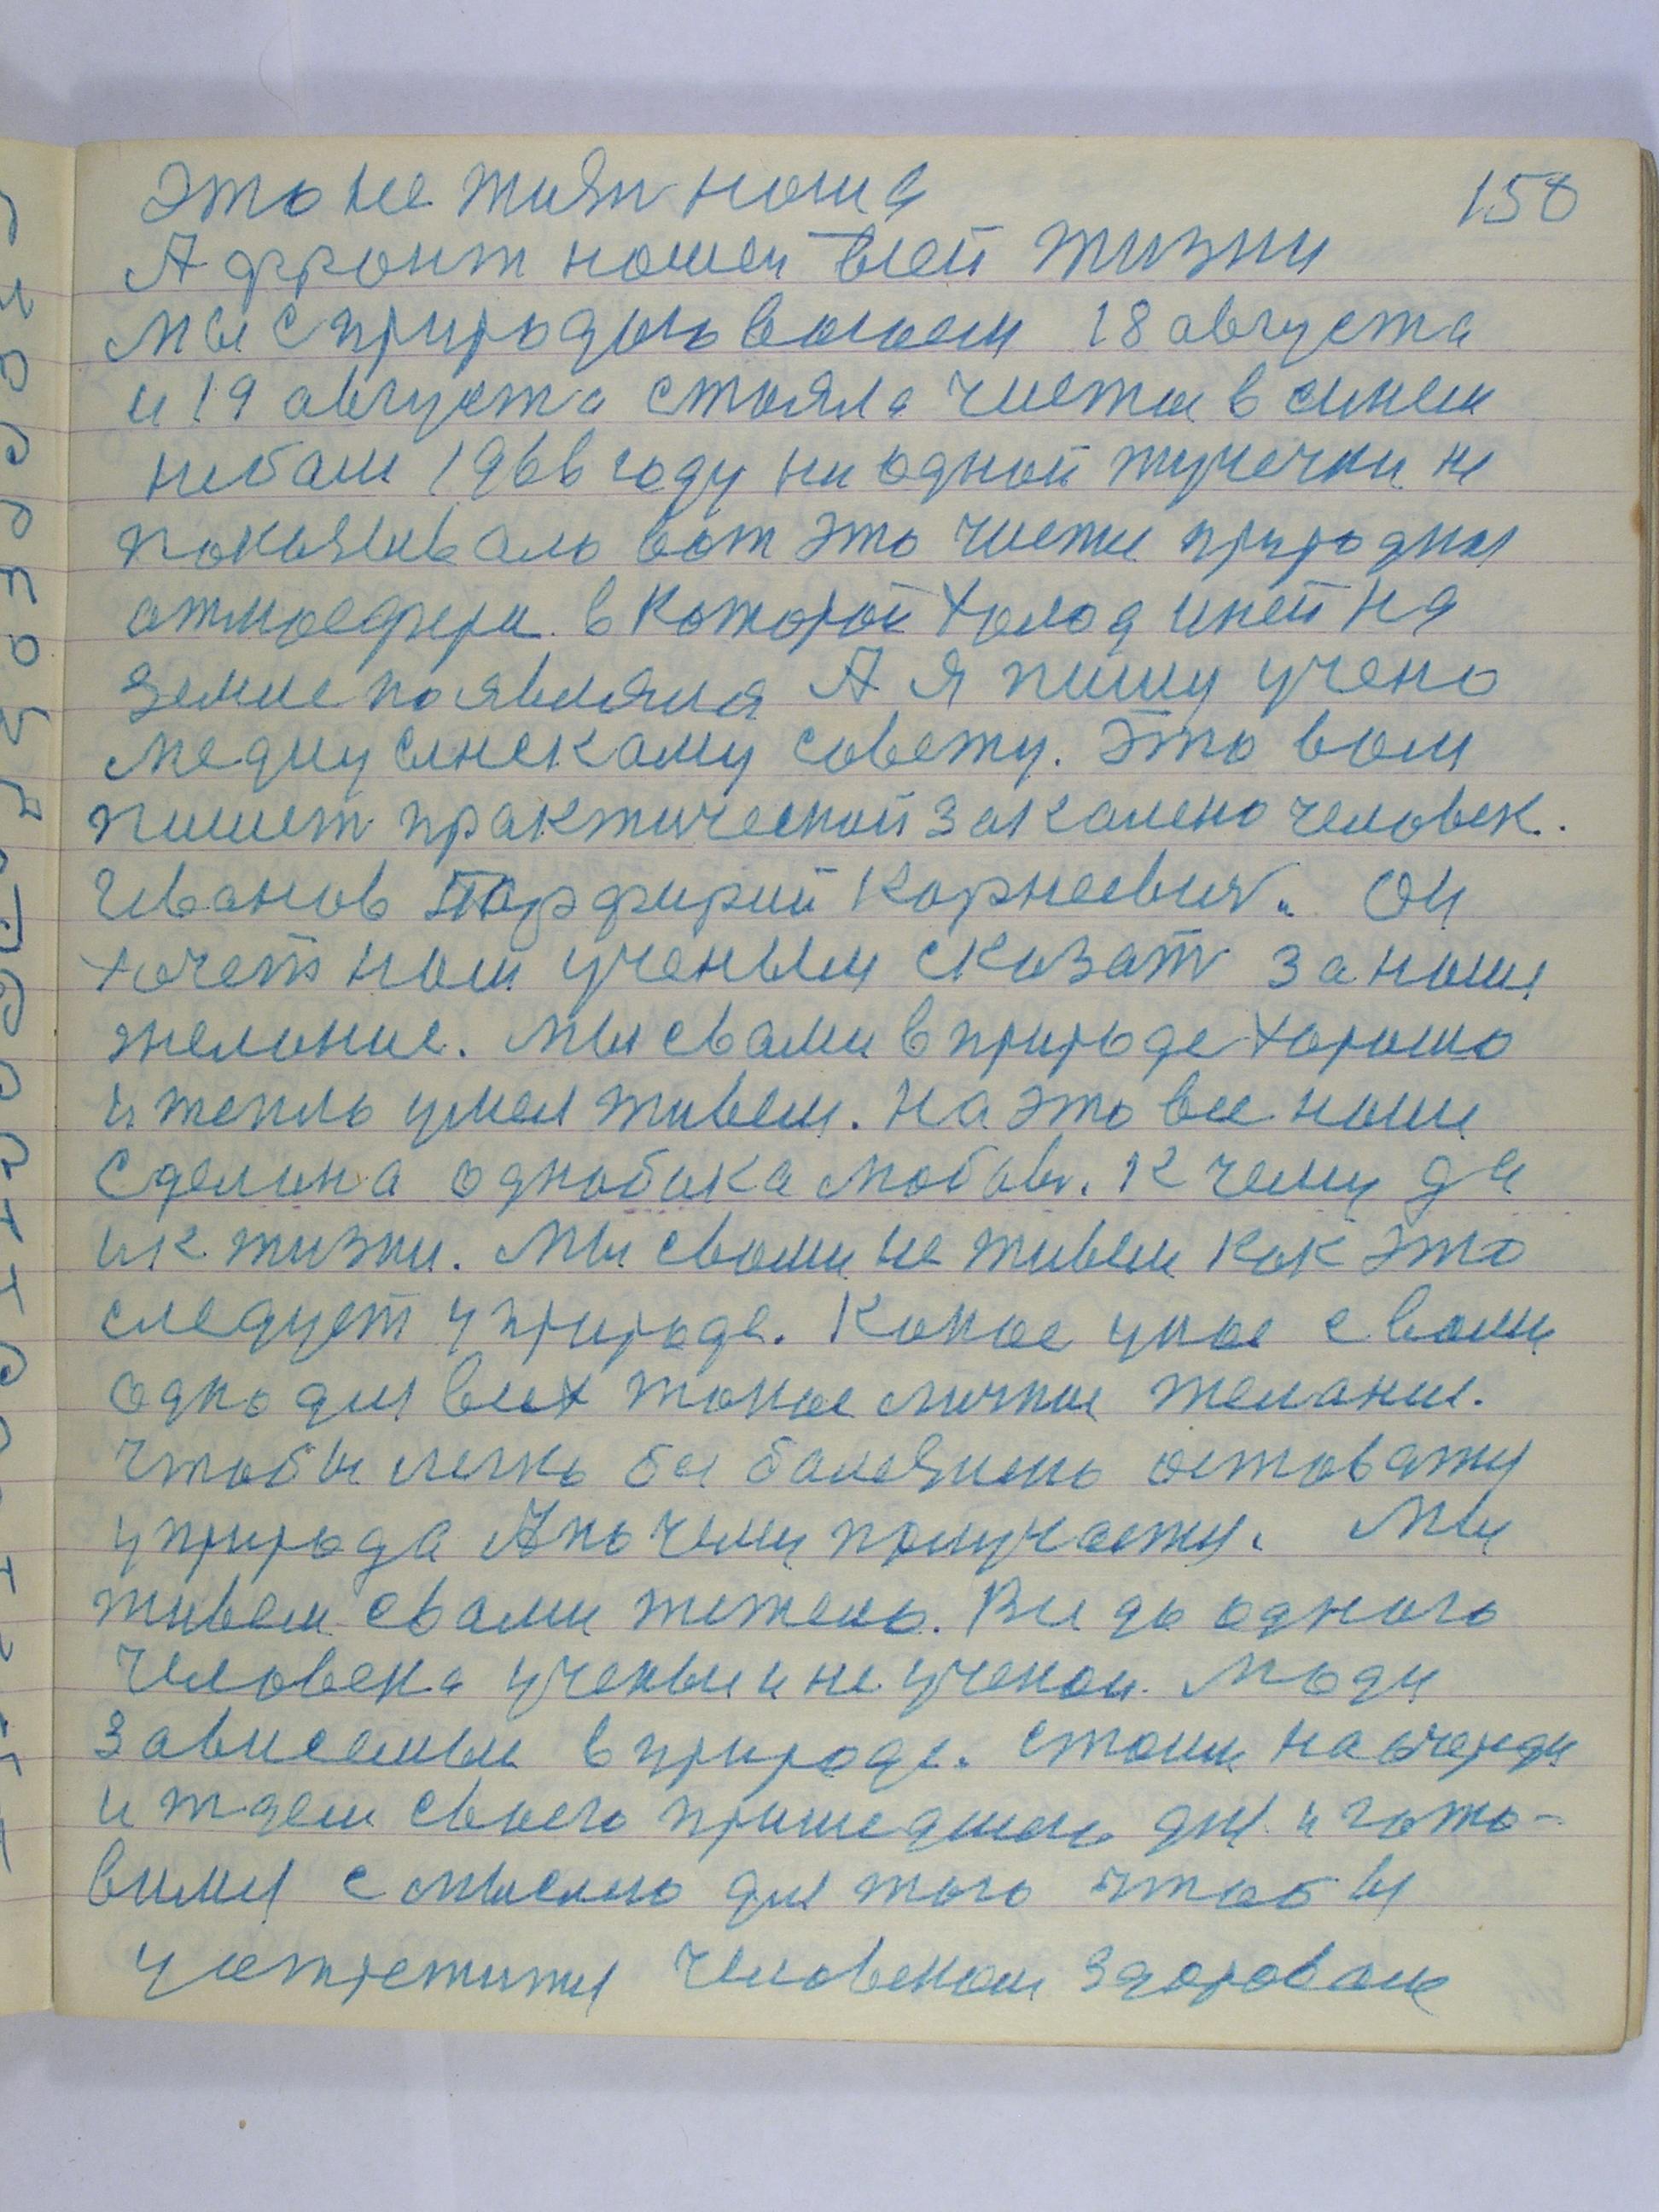 158
это не тиян наша
А фронт нашей всей жизни
Мы с природою воюем 18 августа
и 19 августа стояла чиста в синем
небам 1966 году ни одной тучечки не
показивало вот это чисти природныя
атмосфера в которой холод иней на
земле появлялся А я пишу учено
медицинскаму совету. Это вам
пишет практической закалено человек.
Иванов Парфирий Корнеевич. Он
хочет нам ученым сказат за наши
желание. Мы свами в природе хорошо
и тепло умел живем. На это все наши
сделана однобока любовь. К чему да
и к жизни. Мы свами не живем как это
следует у природе. Какое унас с вами
одно для всех такое личное желание.
Чтобы легко бы болезнено оставатся
у природа А почему получается. Мы
живем свами тежело. Все до одного
человека ученые и не ученои люди
зависемые в природе. стоим на очереди
и ждем своего пришедшего дня и гото-
вимся с мыслею для того чтобы
устретится человеком здоровам